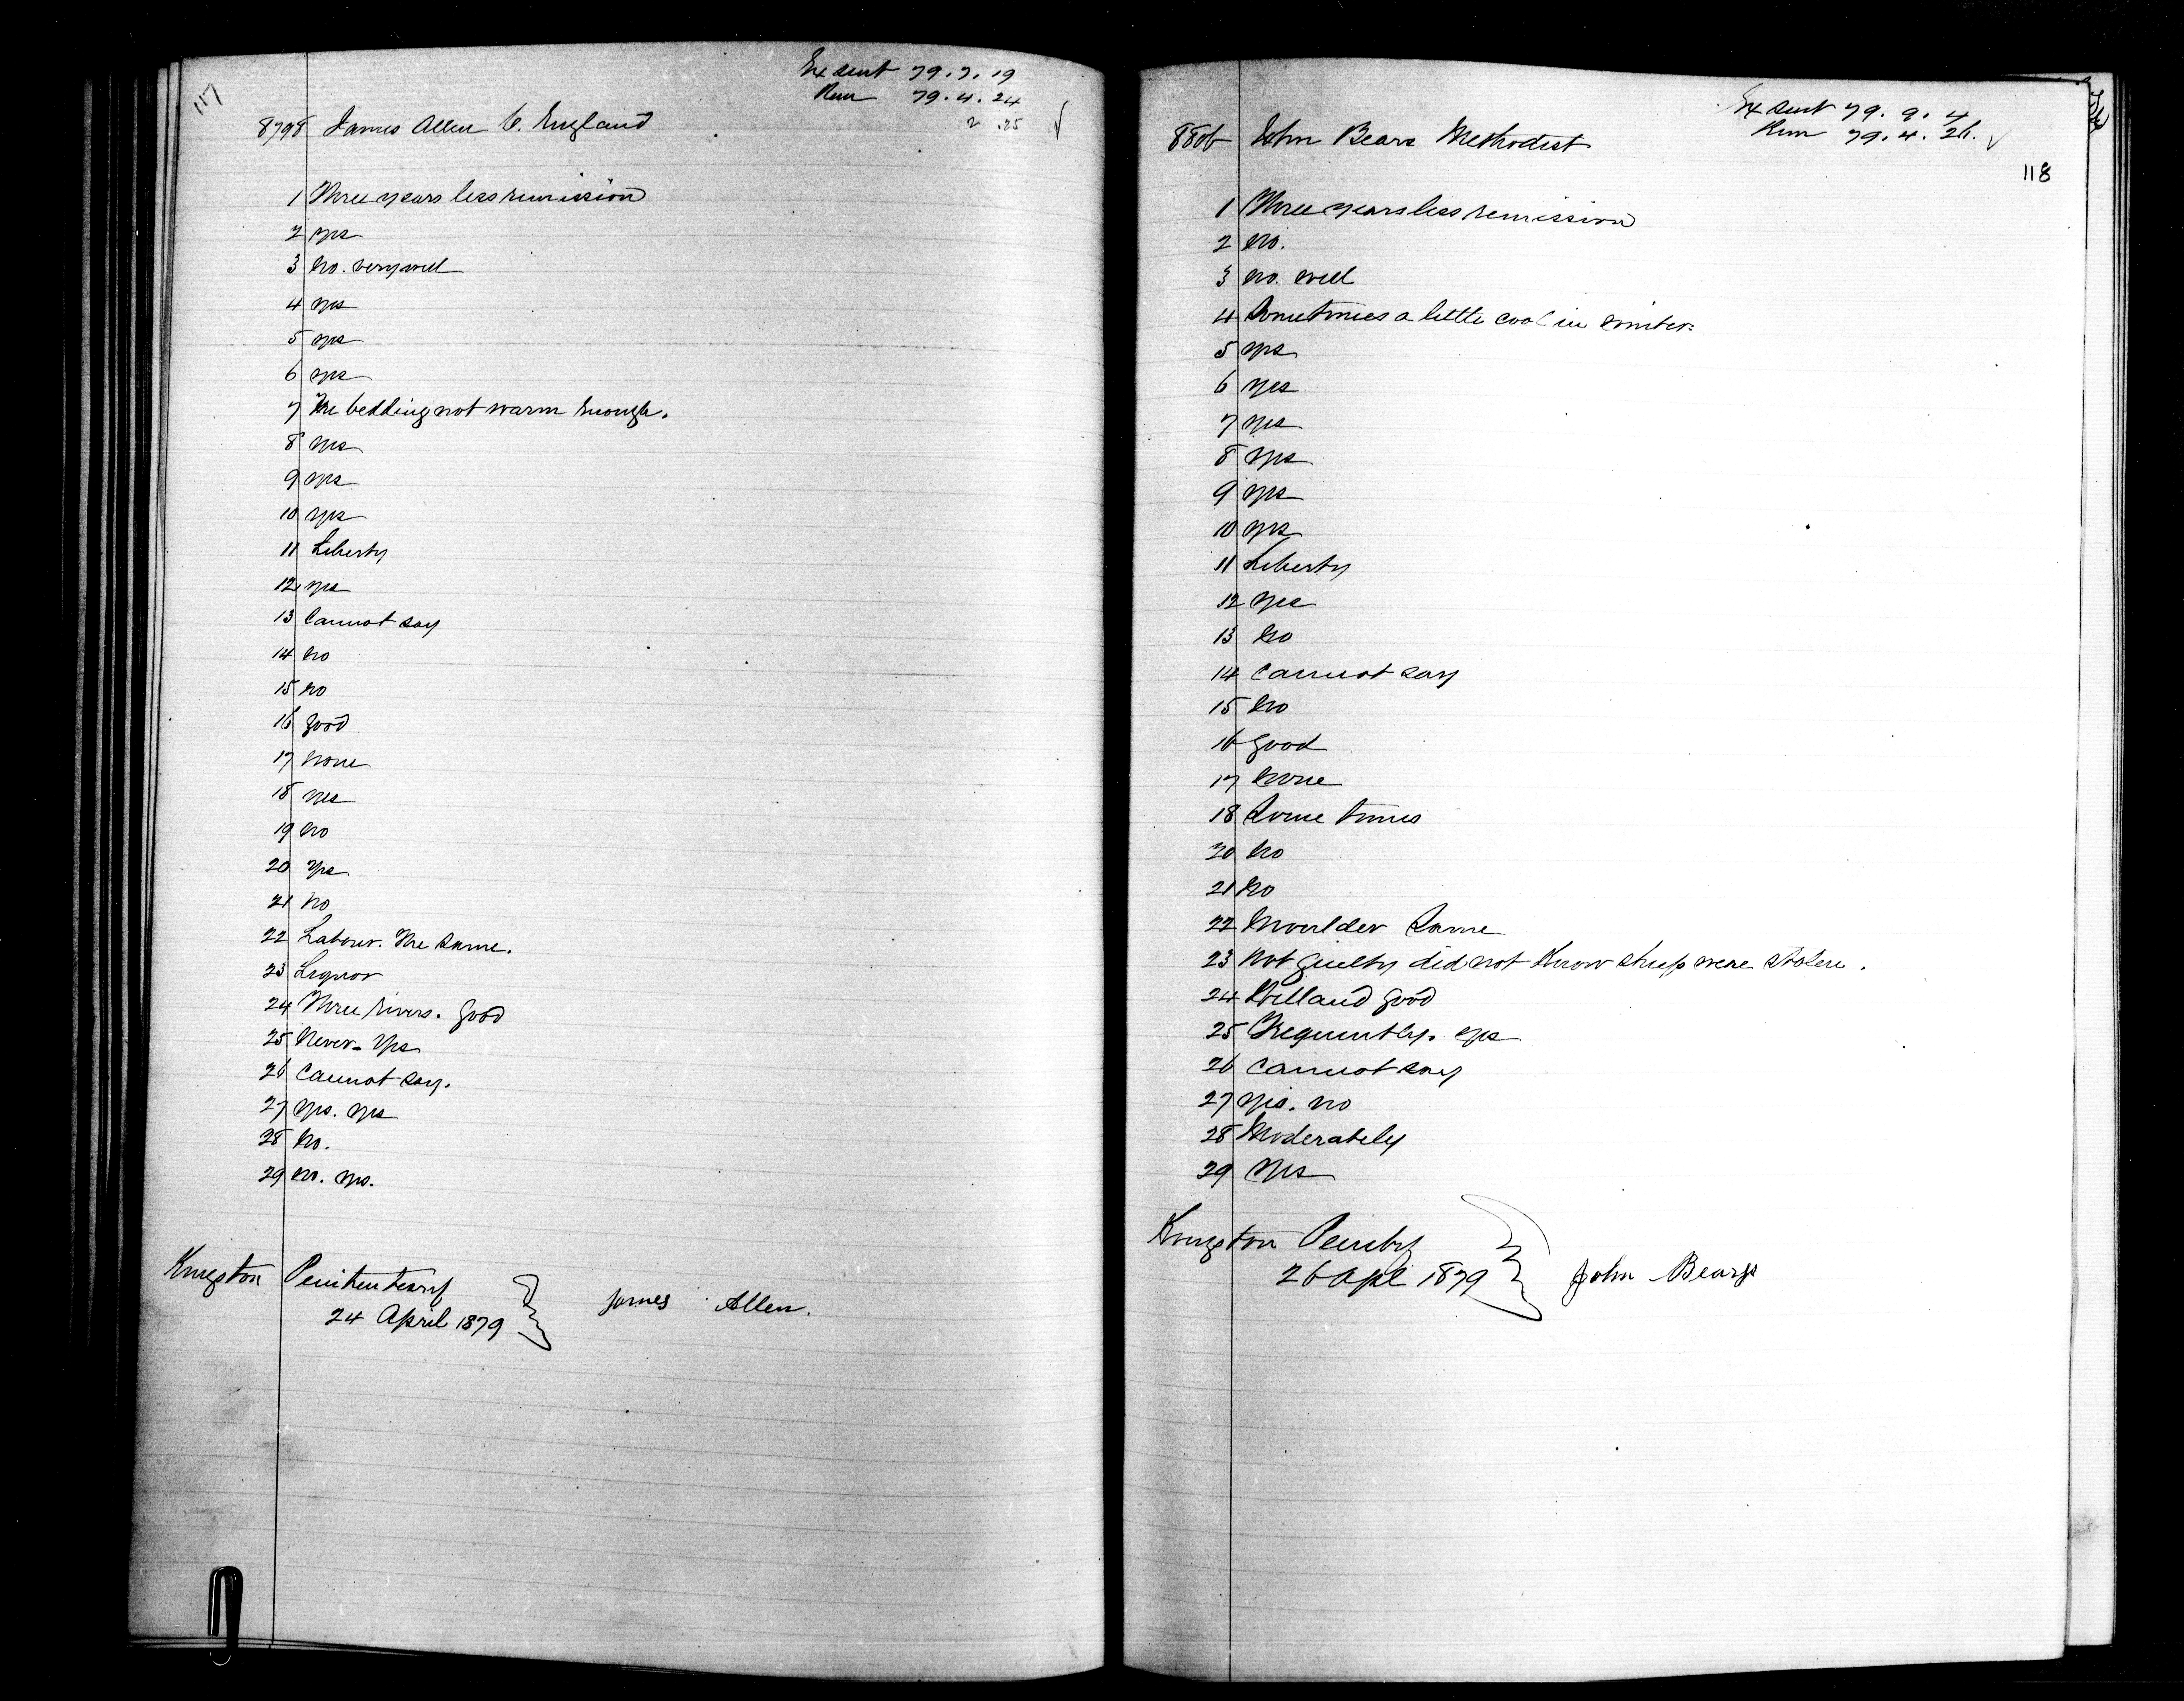 117
Ex sent 79.7.19
Rem 79.4.24
2 .25
8798 James Allen C. England
1 Three years less remission
2 yes
3 No. very well
4 yes
5 yes
6 yes
7 The bedding not warm enough.
8 yes
9 yes
10 yes
11 Liberty
12 yes
13 Cannot say
14 No
15 No
16 Good
17 None
18 yes
19 No
20 Yes
21 No
22 Labour. The same.
23 Liquor
24 Three rivers. Good
25 Never. Yes
26 Cannot say.
27 Yes. Yes
28 No.
29 No. Yes.
Kingston Penitentiary
24 April 1879
James Allen.
Ex sent 79.9.4
Rem 79.4.26.
118
8806 John Bears Methodist
1 Three years less remission
2 No.
3 No. well
4 Sometimes a little cool in winter.
5 yes
6 yes
7 yes
8 yes
9 yes
10 yes
11 Liberty
12 Yes
13 No
14 Cannot say
15 No
16 Good
17 None
18 Some times
20 No
21 No
22 Moulder Same
23 Not guilty did not know sheep were stolen.
24 Welland good
25 Frequently. yes
26 Cannot say
27 Yes. no
28 Moderately
29 Yes
Kingston Penitry
26 Apl 1879
John Bears